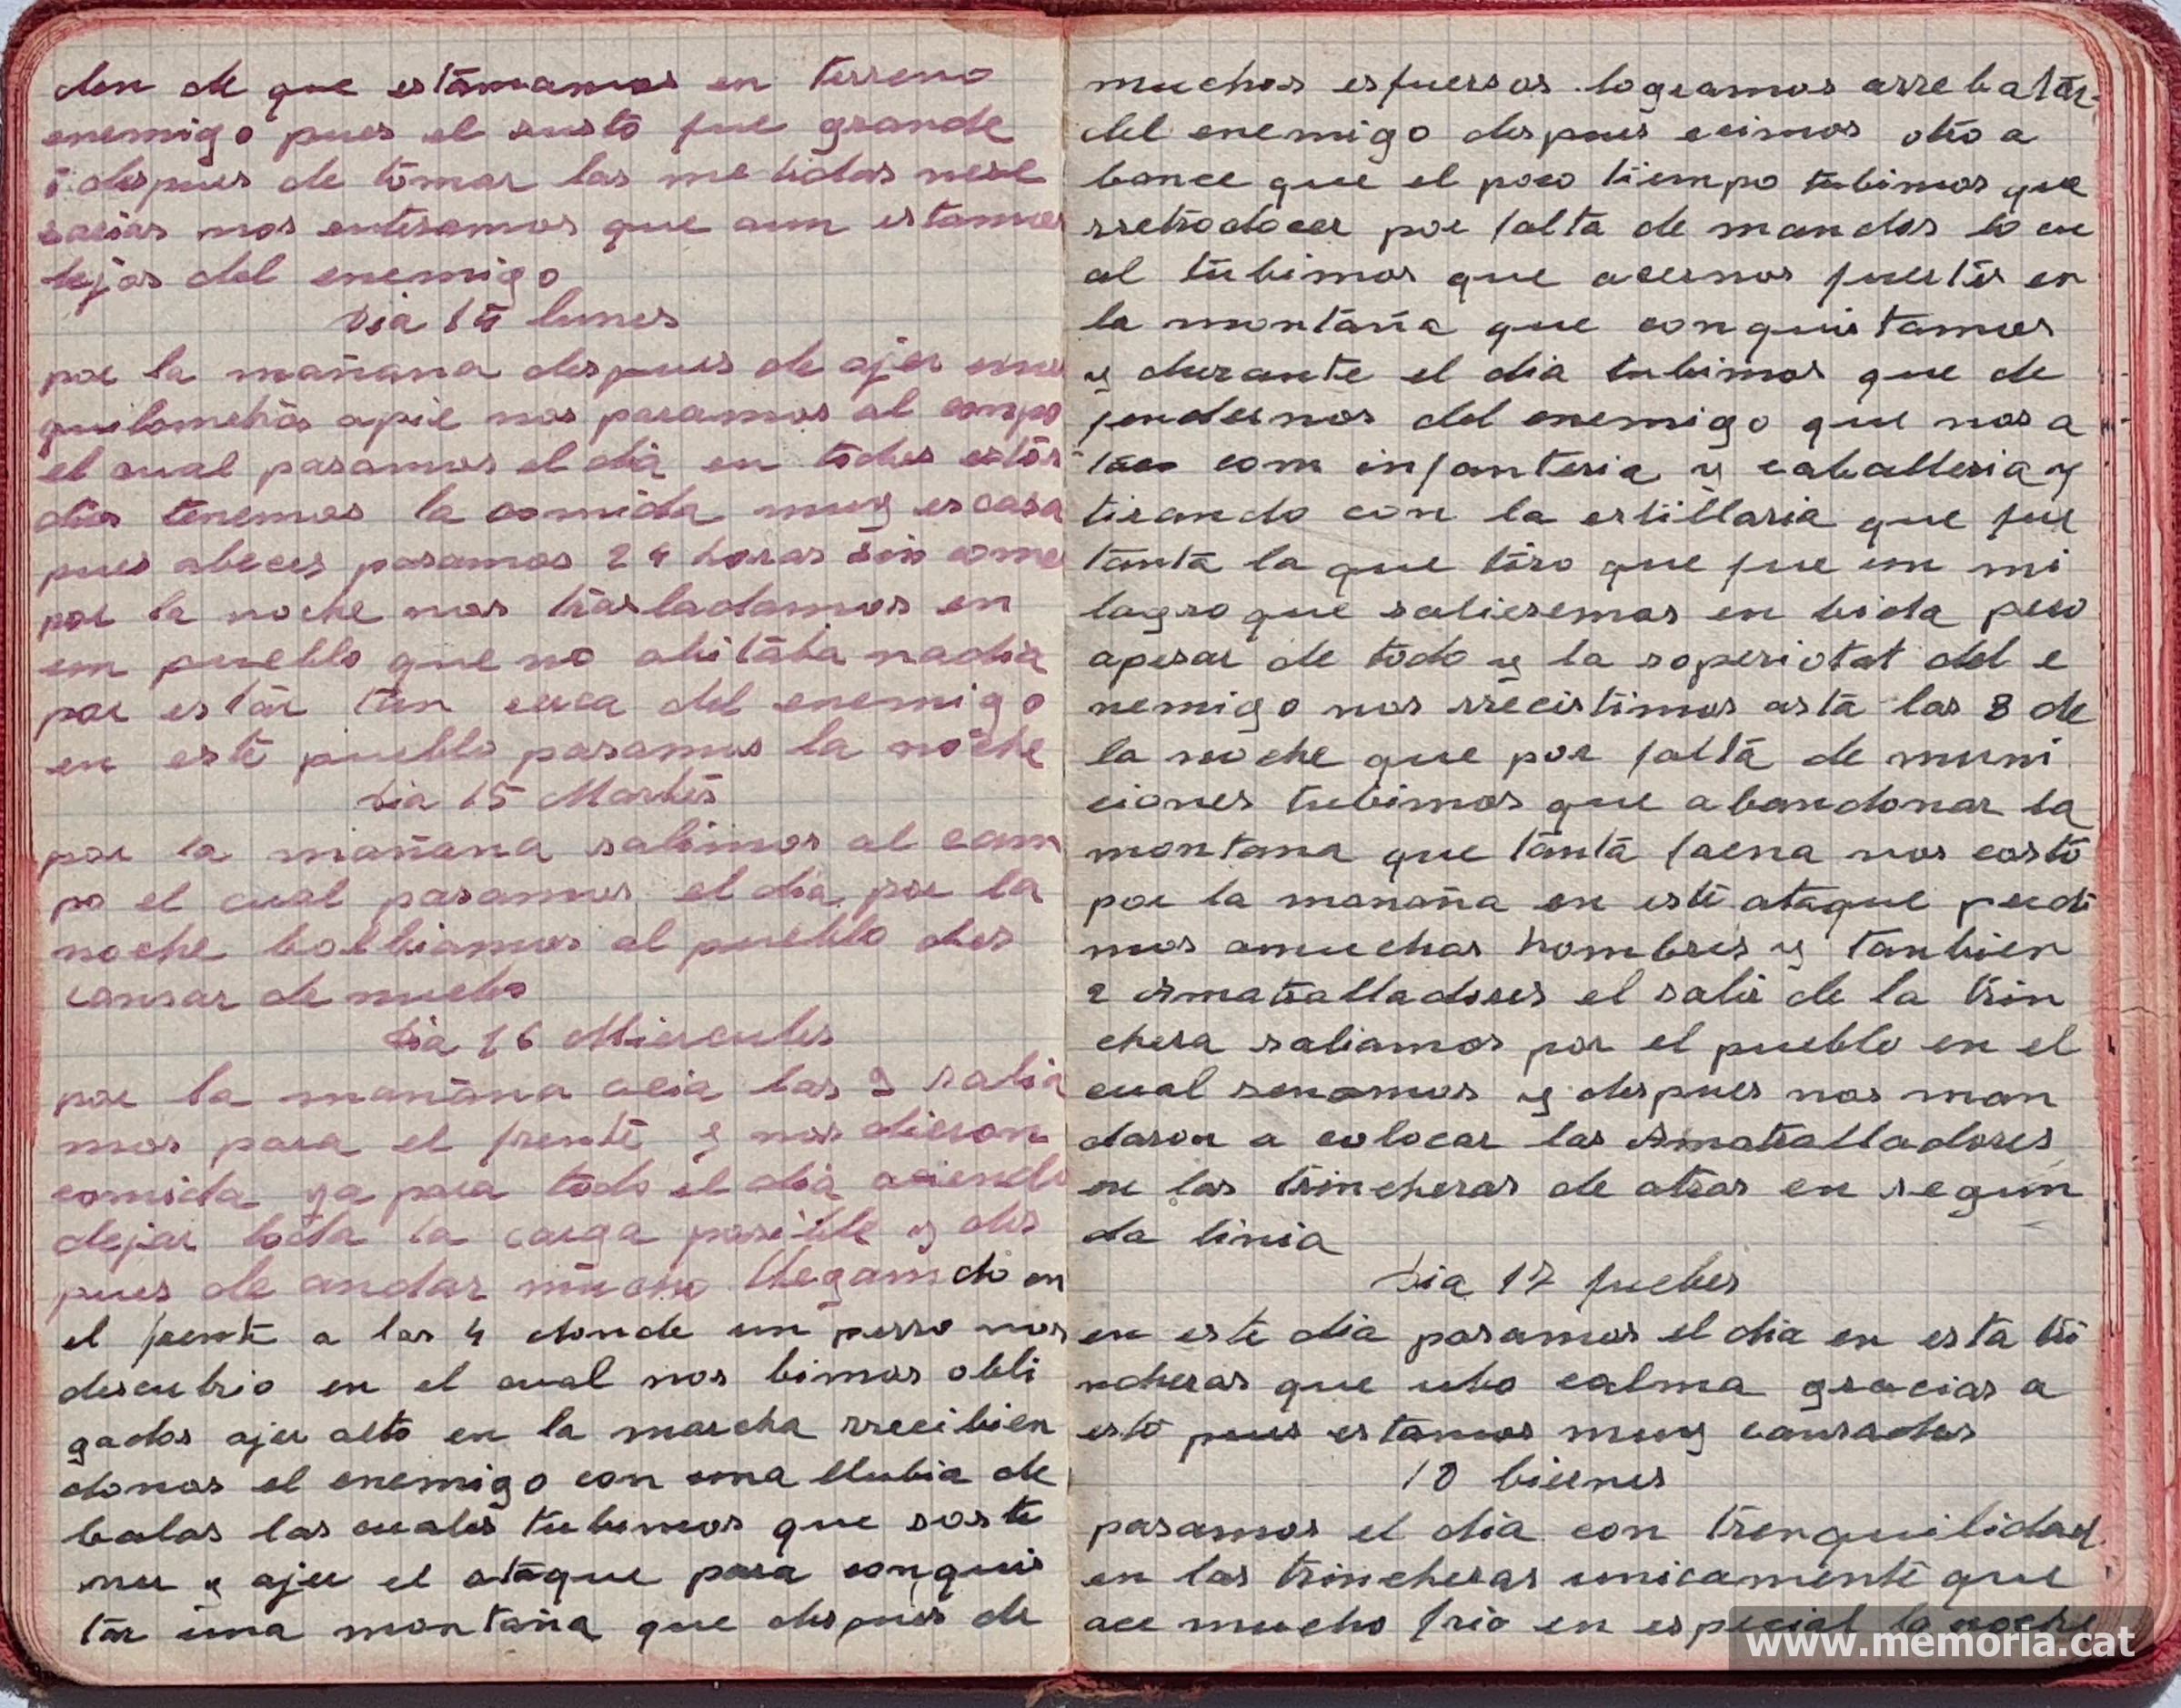 den de que estamamos en terreno
enemigo pues el susto fue grande
i despues de tomar las metidas nese
sarias nos enteramos que aun estamos
lejos del enemigo
Dia 14 lunes
por la mañana despues de ajer unos
quilometros apie nos paramos al campo
el cual pasamos el dia en todos estos
dias tenemos la comida muy escasa
pues abeces pasamos 24 horas sin come
por la noche nos trasladamos en
un pueblo que no abitaba nadia
por estar tan cerca del enemigo
en este pueblo pasamos la noche
Dia 15 Martes
por la mañana salimos al cam
po el cual pasamos el dia por la
noche bolbiamos al pueblo des
cansar de nuebo
Dia 16 Miercules
por la mañana acia las 2 salia
mos para el frente y nos dieron
comida ya para todo el dia aciendo
dejar toda la carga posible y des
pues de andar mucho llegamdo en
el frente a las 4 donde un perro nos
descubrio en el cual nos bimos obli
gados ajer alto en la marcha rrecibien
donos el enemigo con una llubia de
balas las cuales tubimos que soste
ner y ajer el ataque para conquis
tar una montaña que despues de
muchos esfuersos logramos arrebatar
del enemigo despues icimos otro a
bance que el poco tiempo tubimos que
rretrodocer por falta de mandos lo cu
al tubimos que acernos fuertes en
la montaña que conquistamos
y durante el dia tubimos que de
fendernos del enemigo que nos a
taco com infanteria y caballeria y
tirando con la artillaria que fue
tanta la que tiro que fue un mi
lagro que salieremos en bida pero
apesar de todo y la soperiotat del e
nemigo nos rrecistimos asta las 8 de
la noche que por falta de muni
ciones tubimos que abandonar la
montana que tanta faena nos costo
por la manaña en este ataque perdi
mos amuchos hombres y tanbien
2 amatralladores el salir de la trin
chera saliamos por el pueblo en el
cual senamos y despues nos man
daron a colocar las amatralladores
en las trincheras de atras en segun
da linia
Dia 17 juebes
en este dia pasamos el dia en esta tri
ncheras que ubo calma gracias a
esto pues estamos muy cansados
18 biernes
pasamos el dia con trenquilidad
en las trincheras unicamente que
ace mucho frio en especial la noche
www.memoria.cat